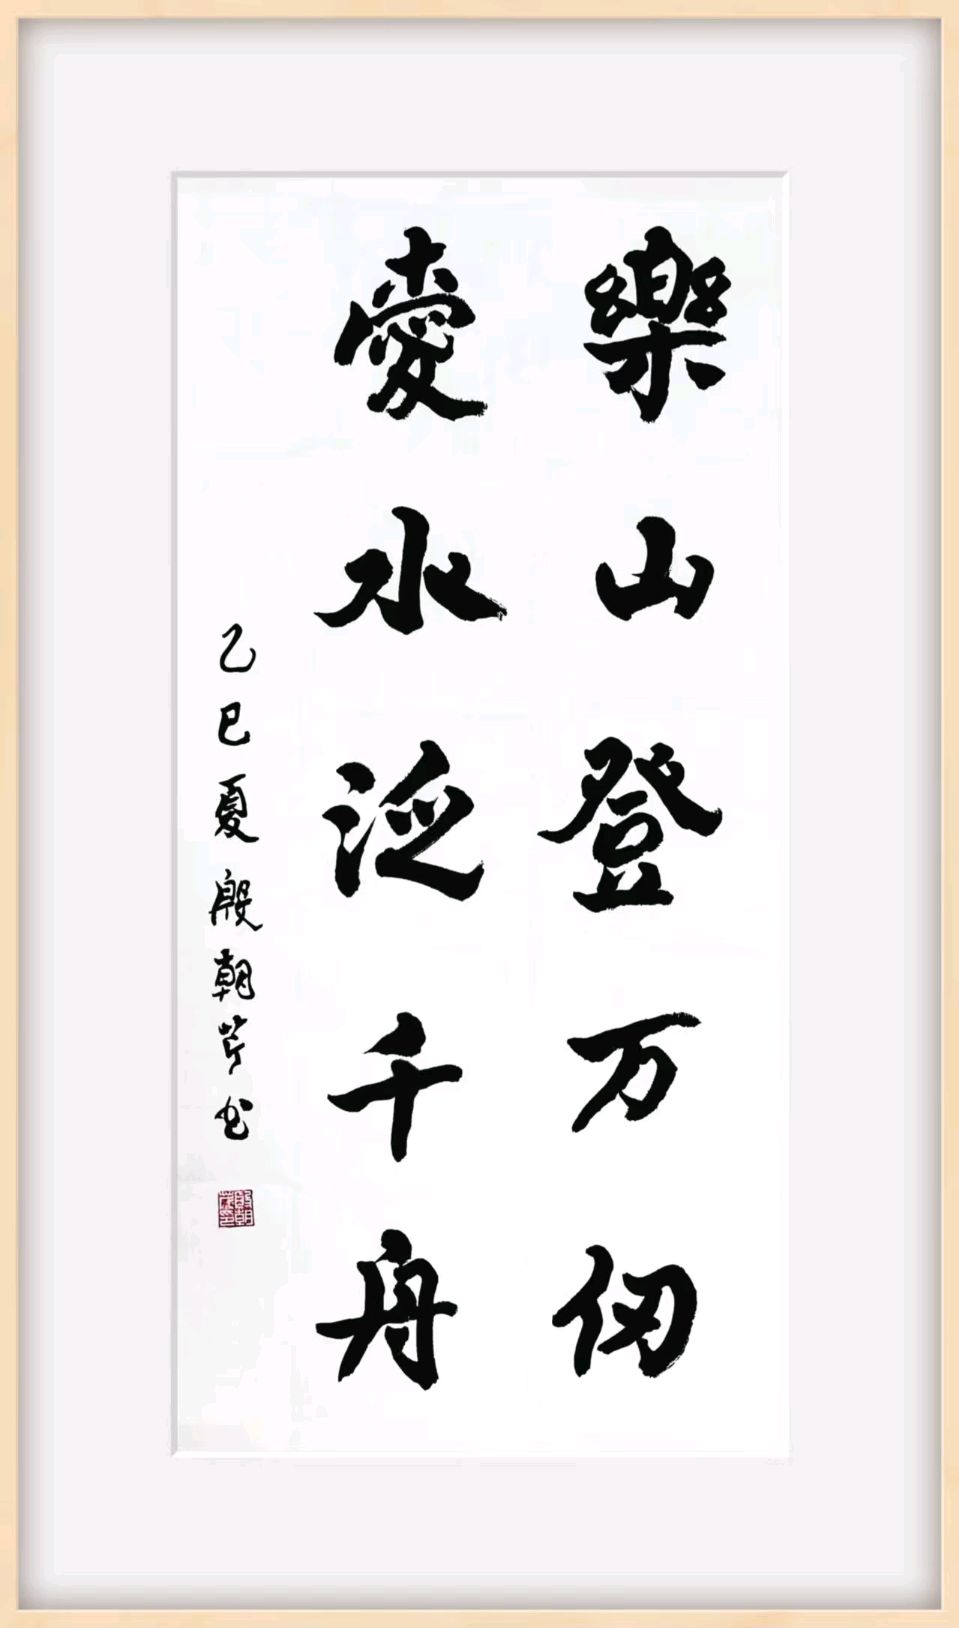 樂山登万仞
愛水泛千舟
乙巳夏殷朝芹书